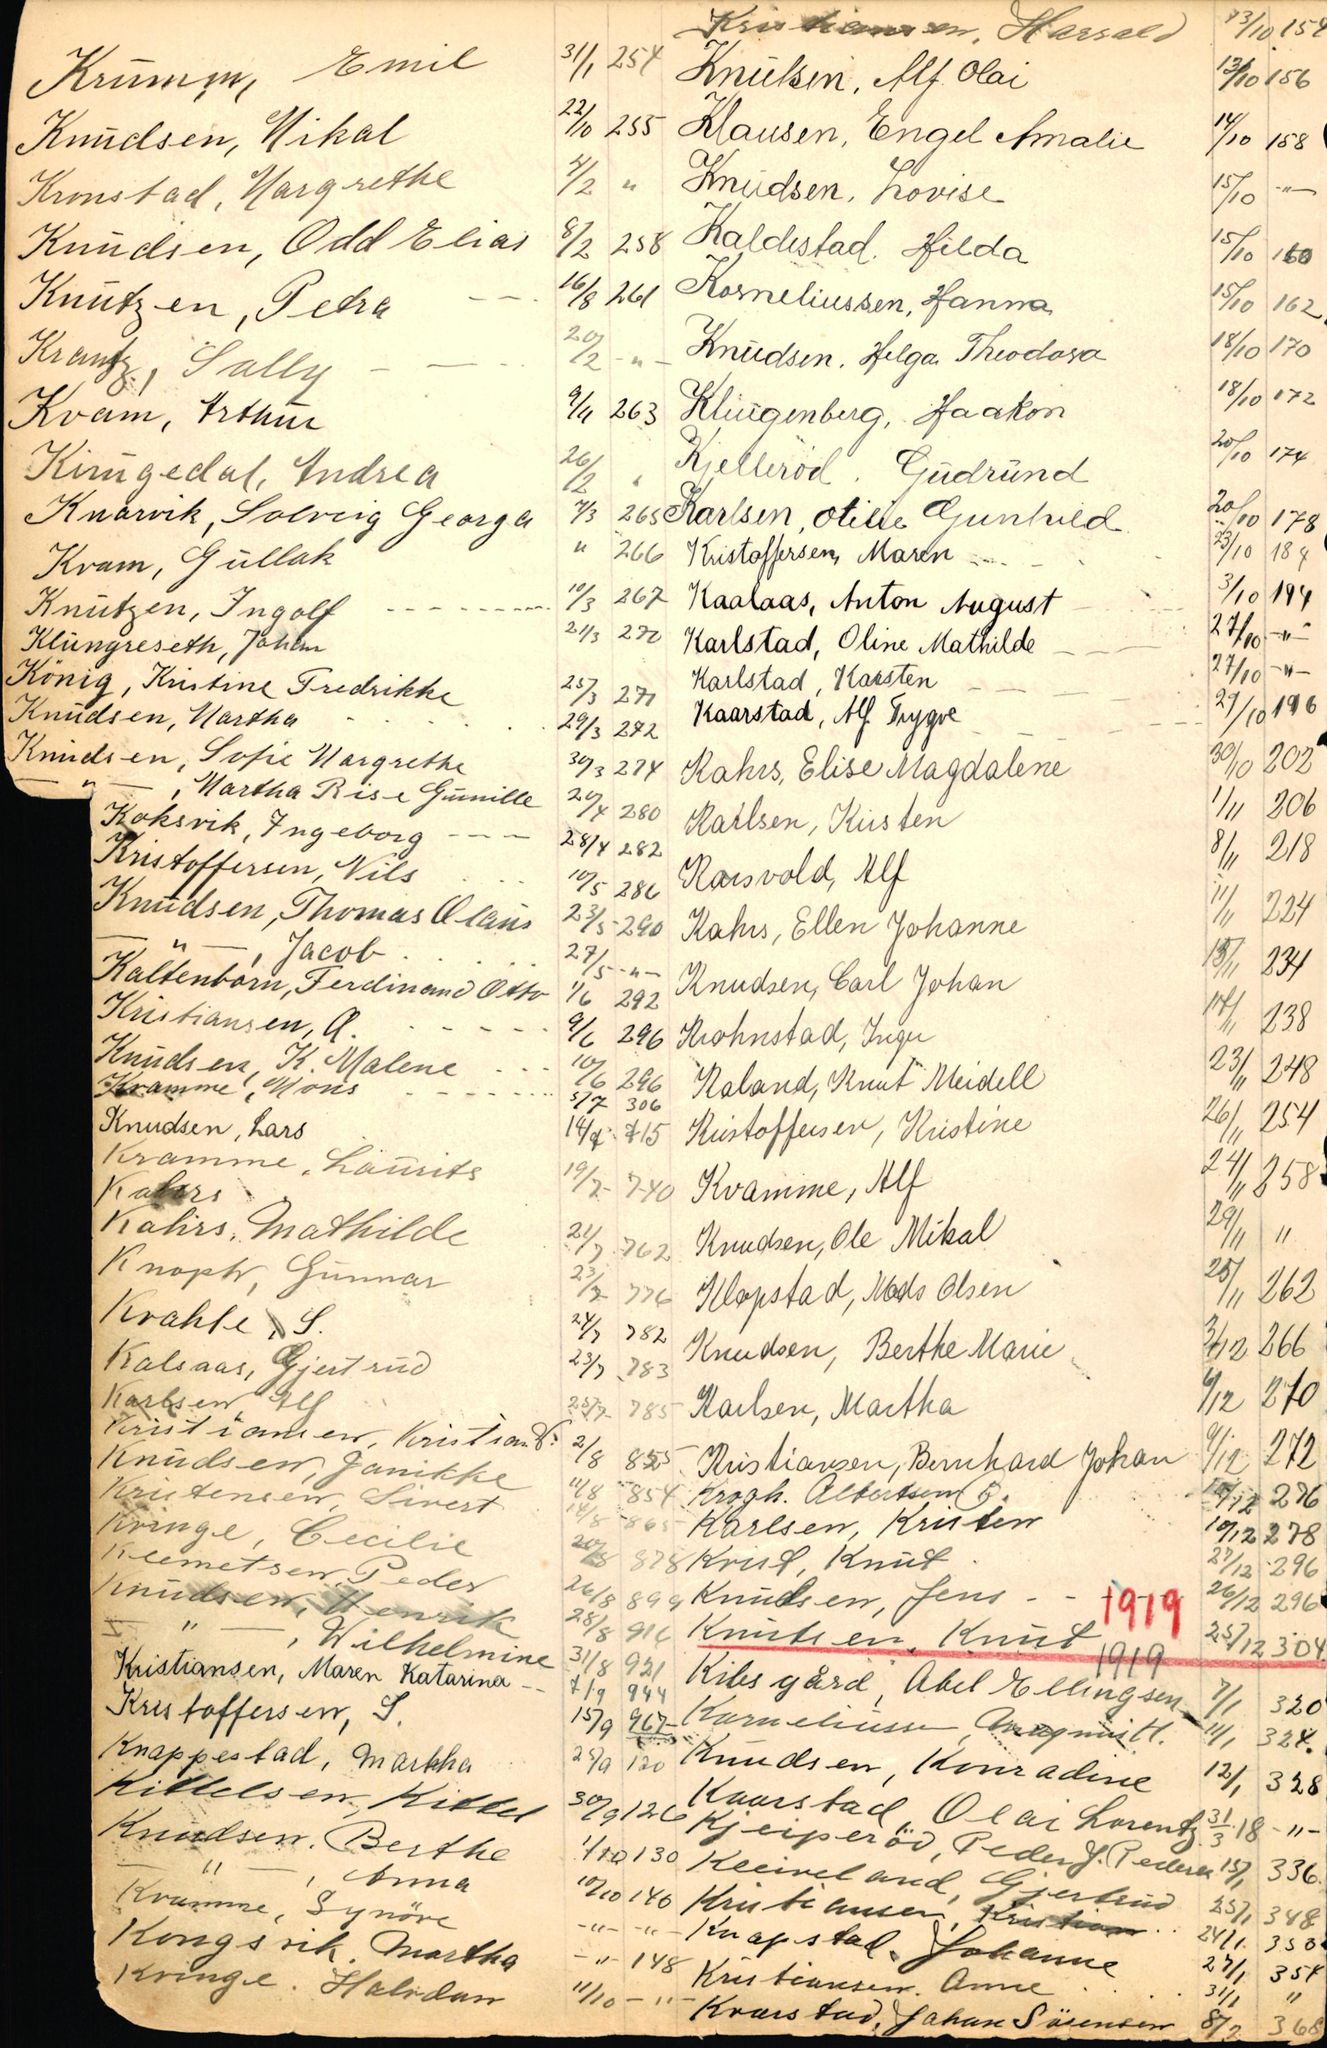 Krumm, Emil 31/1 254
Knudsen, Mikal 22/10 255
Kronstad, Margrethe 4/2 "
Knudsen, Odd Elias 8/2 258
Knutzen, Petra --- 16/8 261
Krantz, Sally --- 20/2 -"-
Kvam, Arthur 9/4 263
Kingedal, Andrea 26/2 "
Knarvik, Solveig Georga 7/3 265
Kvam, Gullak " 266
Knutzen, Ingolf --- 10/3 267
Klungreseth, Johan 21/3 270
König, Kristine Fredrikke 25/3 271
Knudsen, Martha 29/3 272
Knudsen, Sofie Margrethe 30/3 274
— " —, Martha Rise Gunille 20/4 280
Koksvik, Ingeborg --- 28/4 282
Kristoffersen, Nils 10/5 286
Knudsen, Thomas Olaus 23/5 290
— " —, Jacob 27/5 -"-
Kaltenborn, Ferdinand Otto 1/6 292
Kristiansen, A. 9/6 296
Knudsen, K. Malene 10/6 296
Kvamme, Mons 5/7 306
Knudsen, Lars 14/7 715
Kramme, Laurits 19/7 740
Kahrs
Kahrs, Mathilde 21/7 762
Knoph, Gunnar 23/7 776
Krahle, S. 24/7 782
Kalsaas, Gjertrud 23/7 783
Karlsen, Alf 25/7 785
Kristiansen, Kristian 2/8 825
Knudsen, Janikke 11/8 854
Kristensen, Sivert 14/8 865
Kringe, Cecilie 20/8 878
Klemetsen, Peder 26/8 899
Knudsen, Henrik 28/8 916
— " —, Wilhelmine 31/8 921
Kristiansen, Maren Katarina -- 7/9 944
Kristoffersen, S. 15/9 967
Knappestad, Martha 27/9 120
Kittelsen, Kittel 30/9 126
Knudsen, Berthe 1/10 130
— " —, Anna 10/10 140
Kvamme, Synöve -"- -"-
Kongsvik, Martha -"- 148
Kringe, Halvdan 11/10 -"-
Kristiansen, Harrald 13/10 154
Knutsen, Alf Olai 13/10 156
Klausen, Engel Amalie 14/10 158
Knudsen, Lovise 15/10 -"-
Kaldestad, Hilda 15/10 160
Korneliussen, Hanna 15/10 162
Knudsen, Helga Theodora 18/10 170
Klingenberg, Haakon 18/10 172
Kjelleröd, Gudrund 20/10 174
Karlsen, Otilie Gunhild 20/10 178
Kristoffersen, Maren 23/10 184
Kaalaas, Anton August 3/10 194
Karlstad, Oline Mathilde 27/10 -"-
Karlstad, Karsten 27/10 -"-
Kaarstad, Alf Trygve 29/10 196
Kahrs, Elise Magdalene 30/10 202
Karlsen, Kirsten 1/11 206
Korsvold, Alf 8/11 218
Kahrs, Ellen Johanne 11/11 224
Knudsen, Carl Johan 15/11 234
Krohnstad, Inga 238
Kaland, Knut Meidell 23/11 248
Kristoffersen, Kristine 26/11 254
Kvamme, Alf 24/11 258
Knudsen, Ole Mikal 29/11 "
Klopstad, Mads Olsen 25/11 262
Knudsen, Berthe Marie 3/12 266
Karlsen, Martha 6/12 270
Kristiansen, Bernhard Johan 9/12 272
Krogh, Albertsen 276
Karlsen, Kristen 10/12 278
Krist, Knut 27/12 296
Knudsen, Jens -- 26/12 296
1919
Knutsen, Knut 25/12 304
1919
Kilesgård, Abel Ellingsen 7/1 320
Korneliussen, 11/1 324.
Knudsen, Konradine 12/1 328
Kaarstad, Olai Lorentz 31/3 18 -"-
Kjeiperöd, Peder J. Pedersen 15/1 336.
Kleiveland, Gjertrud 25/1 348
Kristiansen, Kristian 24/1 350
Knapstad, Johanne 27/1 354
Kristiansen, Anne 31/1 "
Kvarstad, Johan Sörensen 8/2 368